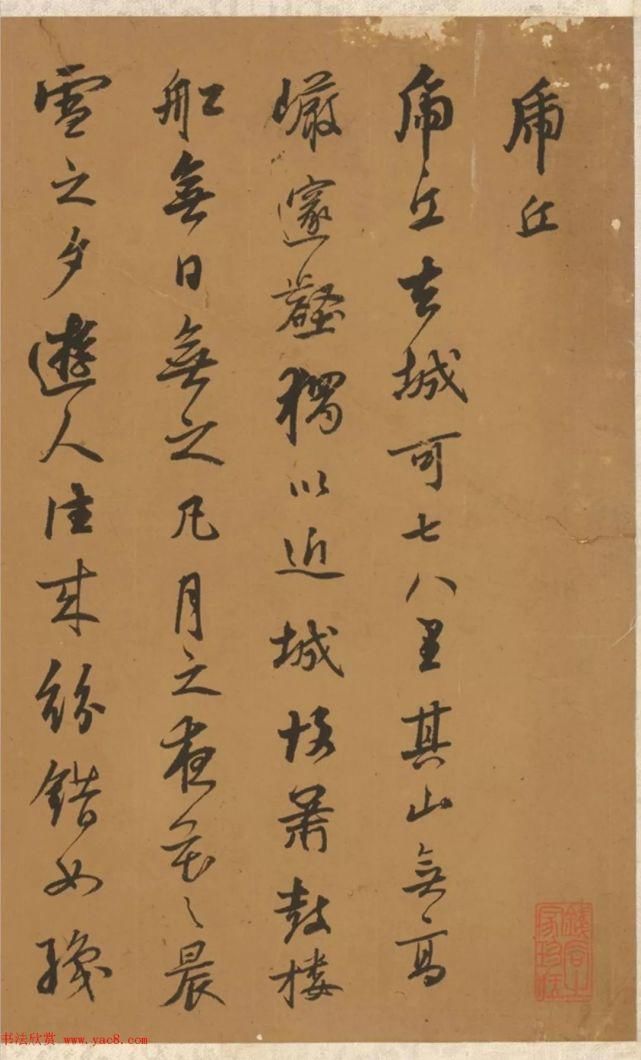 虎丘
虎丘去城可七八里其山無高
巖邃壑獨以近城故蕭鼓樓
船無日無之凡月之夜花之晨
雪之夕遊人往來紛錯如織
书法欣赏 www.yac8.com